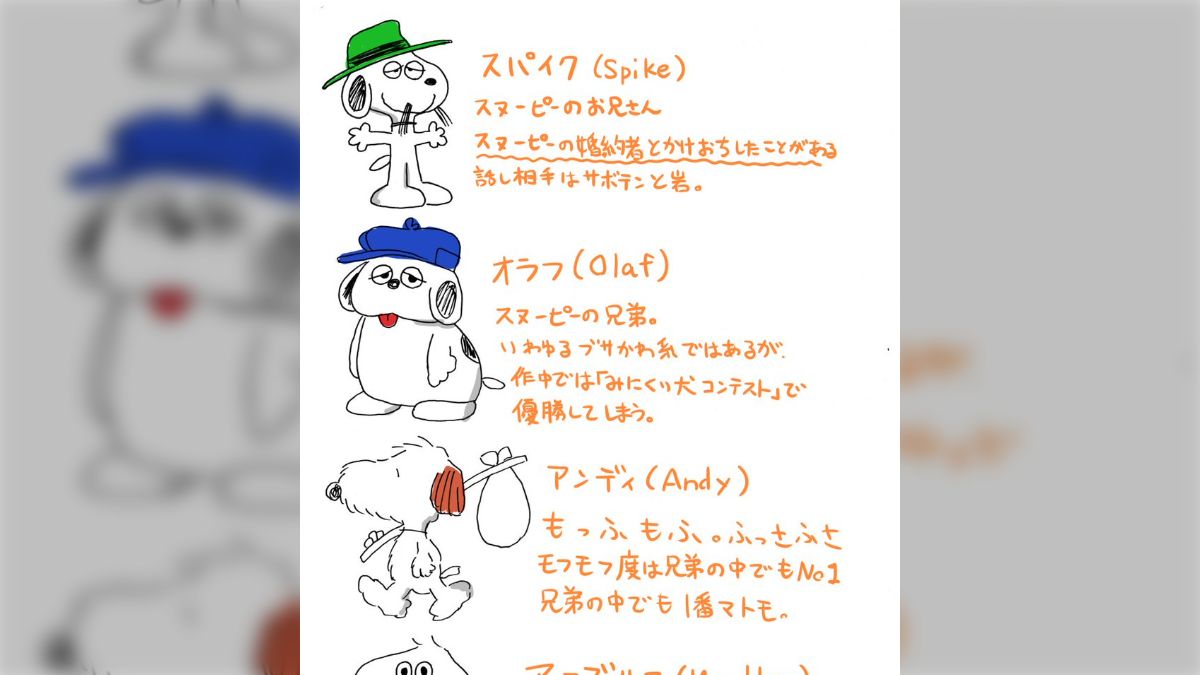 スパイク(Spike)
スヌーピーのお兄さん
スヌーピーの婚約者とかけおちしたことがある
話し相手はサボテンと岩。
オラフ(Olaf)
スヌーピーの兄弟。
いわゆるブサかわ系ではあるが、
作中では「みにくい犬コンテスト」で
優勝してしまう。
アンディ(Andy)
もっふもふ。ふっさふさ
モフモフ度は兄弟の中でもNo1
兄弟の中でも1番マトモ。